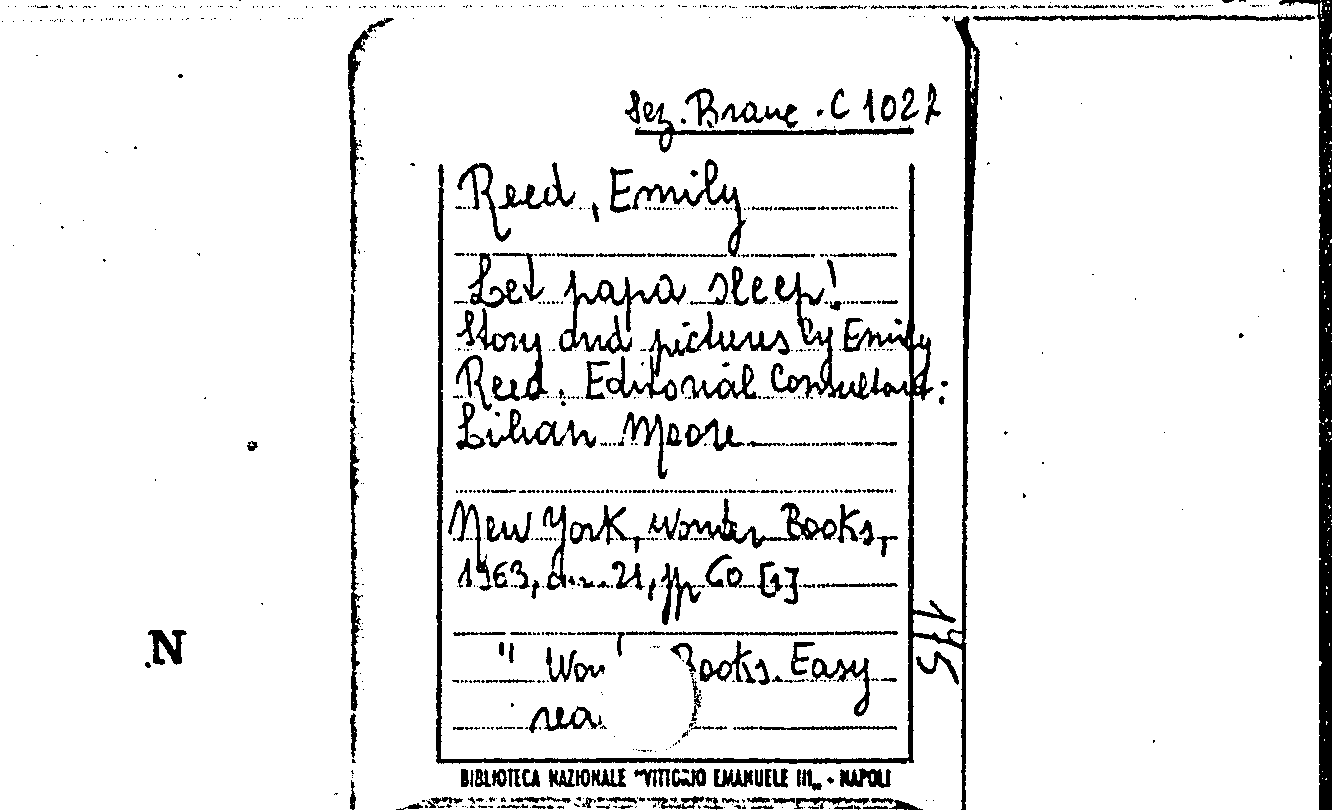 Sez. Branc. C 1022
Reed, Emily
Let papa sleep!
Story and pictures by Emily
Reed. Editorial Consultant:
Lilian Moore
New York, Wonder Books,
1963, cm. 21, pp 60 [1]
" Won Books. Easy
rea
145
N
BIBLIOTECA NAZIONALE "VITTORIO EMANUELE III„ - NAPOLI